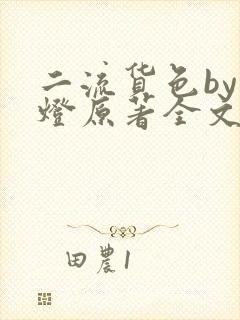 二流货色by
燈原著全文
田農1